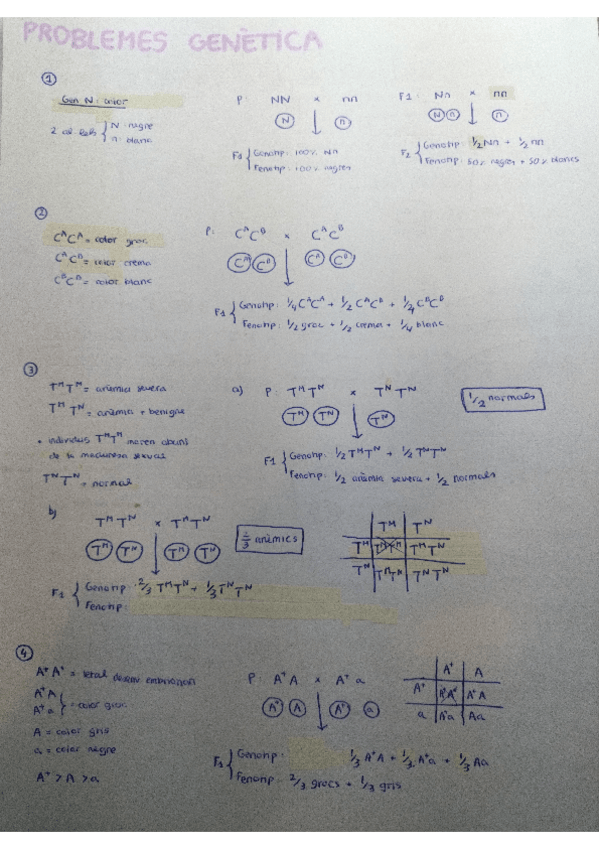 PROBLEMES GENÈTICA
①
Gen N: color
2 al·lels { N: negre
n: blanc
P NN x nn
N n
F1 { Genotip: 100% Nn
Fenotip: 100% negres
F1: Nn x nn
N n n
F2 { Genotip: 1/2 Nn + 1/2 nn
Fenotip: 50% negres + 50% blancs
②
CᴬCᴬ = color groc
CᴬCᴮ = color crema
CᴮCᴮ = color blanc
P: CᴬCᴮ x CᴬCᴮ
Cᴬ Cᴮ Cᴬ Cᴮ
F1 { Genotip: 1/4 CᴬCᴬ + 1/2 CᴬCᴮ + 1/4 CᴮCᴮ
Fenotip: 1/2 groc + 1/2 crema + 1/4 blanc
③
TᴹTᴹ = anèmia severa
TᴹTᴺ = anèmia + benigna
• individus TᴹTᴹ moren abans
de la maduresa sexual
TᴺTᴺ = normal
a) P: TᴹTᴺ x TᴺTᴺ
Tᴹ Tᴺ Tᴺ
F1 { Genotip: 1/2 TᴹTᴺ + 1/2 TᴺTᴺ
Fenotip: 1/2 anèmia severa + 1/2 normals
1/2 normals
b)
TᴹTᴺ x TᴹTᴺ
Tᴹ Tᴺ Tᴹ Tᴺ
F1 { Genotip: 2/3 TᴹTᴺ + 1/3 TᴺTᴺ
Fenotip:
2/3 anèmics
Tᴹ Tᴺ
Tᴹ TᴹTᴹ TᴹTᴺ
Tᴺ TᴹTᴺ TᴺTᴺ
④
A⁺A⁺ = letal
A⁺A
A⁺a } = color groc
A = color gris
a = color negre
A⁺ > A > a
P: A⁺A x A⁺a
A⁺ A A⁺ a
F1 { Genotip: 1/3 A⁺A + 1/3 A⁺a + 1/3 Aa
Fenotip: 2/3 grocs + 1/3 gris
A⁺ A
A⁺ A⁺A⁺ A⁺A
a A⁺a Aa